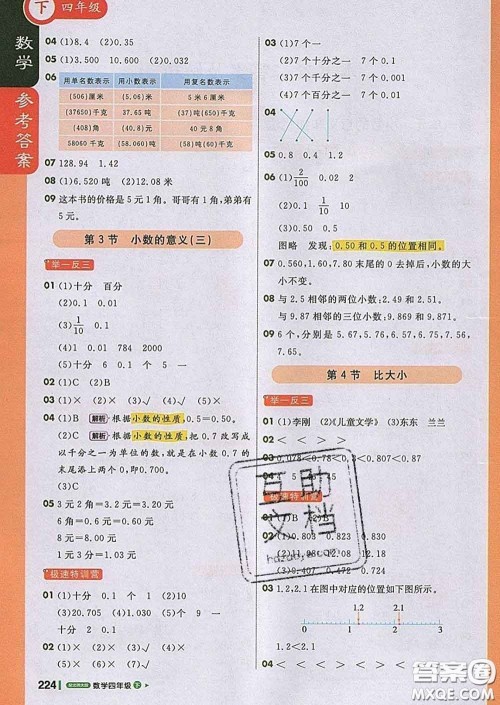 下 四年级
数学
参考答案
04 (1)8.4 (2)0.35
05 (1)3.150 (2)6.500
06
用单名数表示 用小数表示 用复名数表示
(506)厘米 (5.06)米 5米6厘米
(37650)千克 37.65吨 (37)吨(650)千克
(408)角 (40.8)元 40元8角
58060千克 (58.060)吨 (58)吨(60)千克
07 128.94 1.42
08 (1)6.520吨 (2)12.08米
09 这本书的价格是5元1角。哥哥有1角,弟弟有
5元。
第3节 小数的意义(三)
举一反三
01 (1)十分 百分
(2)0.1 0.01
(3)1/10 0.1
(4)1 0.01 784 2000
(5)十分 6 0.1 个 5 一
02 (1)C (2)B
03 (1)× (2)× (3)√ (4)√
04 (1)B 解析 根据小数的性质,0.5=0.50。
(2)C 解析 根据小数的性质,把0.7改写成
以千分之一为单位的数,就是在0.7的
末尾添上两个0,即0.700。
05 3元2角=3.20元
8元=8.00元
2元6角=2.60元
极速特训营
01 (1)十分 百分 千分 (2)10 100
(3)20.705 (4)1085 (5)个 9 一
十分 2 0.1
02 (1)× (2)√ (3)√ (4)×
224 数学四年级 下
03 (1)7个一
(2)7个十分之一 7个0.1
(3)7个千分之一 7个0.001
(4)7个百分之一 7个0.01
04
05 0.8 0.4 1.2
06 (1)2/100 0.02
(2)1/10 0.1
(3)0.50
图略 发现:0.50和0.5的位置相同。
07 0.560,1.60,7.80末尾的0去掉后,小数的大
小不变。
08 与2.5相邻的两位小数:2.49和2.51。
与9.87相邻的三位小数:9.869和9.871。
09 6个,分别是5.67 5.76 6.57 6.75
7.56 7.65。
第4节 比大小
举一反三
01 (1)李刚 (2)《儿童文学》 (3)东东 兰兰
02 < < > >
03 0.078<0.78<0.8<0.83<0.87
极速特训营
互助
文档
01 (1)B (2)B
02 (1)0.803 0.822 0.823
(2)11.98 12.08 12.18
(3)0.802 0.82 8.02
03 1.2 2.1 在图中对应的位置如下图所示。
1.2 2.1
1.2<2.1
04 < < < <
答案圈
MXQE.COM